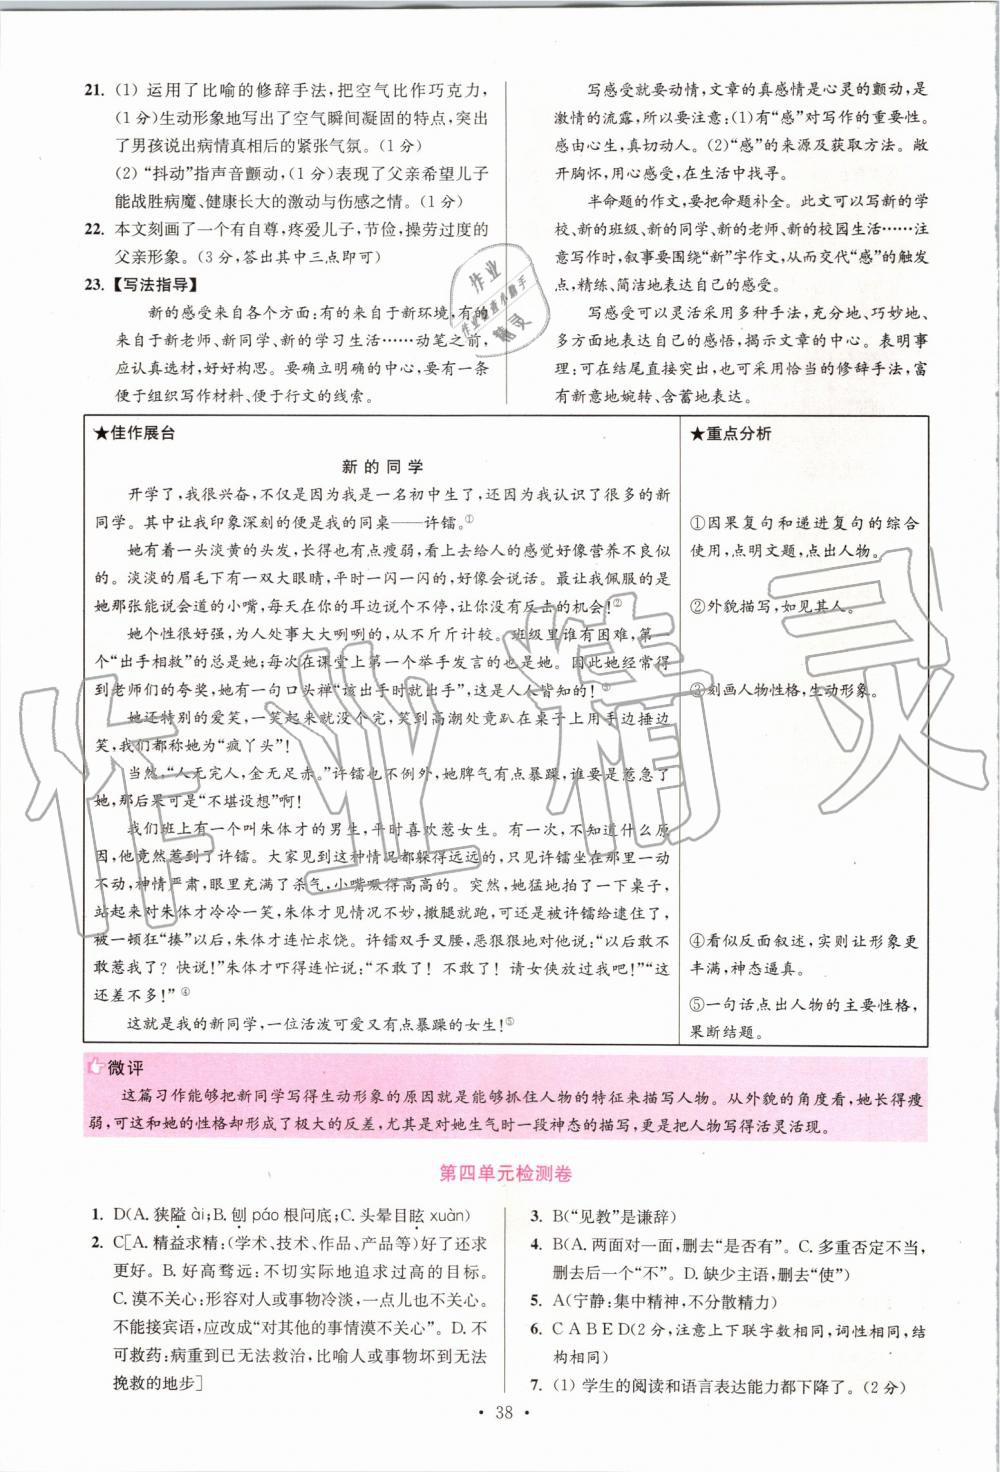 21. (1) 运用了比喻的修辞手法,把空气比作巧克力,
(1分)生动形象地写出了空气瞬间凝固的特点,突出
了男孩说出病情真相后的紧张气氛。(1分)
(2) “抖动”指声音颤动,(1分)表现了父亲希望儿子
能战胜病魔、健康长大的激动与伤感之情。(1分)
22. 本文刻画了一个有自尊,疼爱儿子,节俭,操劳过度的
父亲形象。(3分,答出其中三点即可)
23. 【写法指导】
新的感受来自各个方面:有的来自于新环境,有的
来自于新老师、新同学、新的学习生活……动笔之前,
应认真选材,好好构思。要确立明确的中心,要有一条
便于组织写作材料、便于行文的线索。
写感受就要动情,文章的真感情是心灵的颤动,是
激情的流露,所以要注意:(1)有“感”对写作的重要性。
感由心生,真切动人。(2)“感”的来源及获取方法。敞
开胸怀,用心感受,在生活中找寻。
半命题的作文,要把命题补全。此文可以写新的学
校、新的班级、新的同学、新的老师、新的校园生活……注
意写作时,叙事要围绕“新”字作文,从而交代“感”的触发
点,精练、简洁地表达自己的感受。
写感受可以灵活采用多种手法,充分地、巧妙地、
多方面地写出自己的感悟,揭示文章的中心。表明事
理;可在结尾直接突出,也可采用恰当的修辞手法,富
有新意地婉转、含蓄地表达。
★佳作展台
新的同学
开学了,我很兴奋,不仅是因为我是一名初中生了,还因为我认识了很多的新
同学。其中让我印象深刻的便是我的同桌——许镭。①
她有着一头淡黄的头发,长得也有点瘦弱,看上去给人的感觉好像营养不良似
的。淡淡的眉毛下有一双大眼睛,平时一闪一闪的,好像会说话。最让我佩服的是
她那张能说会道的小嘴,每天在你的耳边说个不停,让你没有反击的机会!②
她个性很好强,为人处事大大咧咧的,从不斤斤计较。班级里谁有困难,第一
个“出手相救”的总是她;每次在课堂上第一个举手发言的也是她。因此她经常得
到老师们的夸奖,她有一句口头禅“该出手时就出手”,这是人人皆知的!③
她还特别的爱笑,一笑起来就没个完,笑到高潮处竟趴在桌子上用手边捶边
笑,我们都称她为“疯丫头”!
当然,“人无完人,金无足赤。”许镭也不例外,她脾气有点暴躁,谁要是惹急了
她,那后果可是“不堪设想”啊!
我们班上有一个叫朱体才的男生,平时喜欢惹女生。有一次,不知道什么原
因,他竟然惹到了许镭。大家见到这种情况都躲得远远的,只见许镭坐在那里一动
不动,神情严肃,眼里充满了杀气,小嘴噘得高高的。突然,她猛地拍了一下桌子,
站起来对朱体才冷冷一笑,朱体才见情况不妙,撒腿就跑,可到底还是被许镭给逮住了,
被一顿狂“揍”以后,朱体才连忙求饶。许镭双手叉腰,恶狠狠地对他说:“以后敢不
敢惹我了?快说!”朱体才吓得连忙说:“不敢了!不敢了!请女侠放过我吧!”“这
还差不多!”④
这就是我的新同学,一位活泼可爱又有点暴躁的女生!⑤
★重点分析
①因果复句和递进复句的综合
使用,点明文题,点出人物。
②外貌描写,如见其人。
③刻画人物性格,生动形象。
④看似反面叙述,实则让形象更
丰满,神态逼真。
⑤一句话点出人物的主要性格,
果断结题。
微评
这篇习作能够把新同学写得生动形象的原因就是能够抓住人物的特征来描写人物。从外貌的角度看,她长得瘦
弱,可这和她的性格却形成了极大的反差,尤其是对她生气时一段神态的描写,更是把人物写得活灵活现。
第四单元检测卷
1. D(A. 狭隘 ài;B. 刨 páo 根问底;C. 头晕目眩 xuàn)
2. C[A. 精益求精:(学术、技术、作品、产品等)好了还求
更好。B. 好高骛远:不切实际地追求过高的目标。
C. 漠不关心:形容对人或事物冷淡,一点儿也不关心。
不能接宾语,应改成“对其他的事情漠不关心”。D. 不
可救药:病重到已无法救治,比喻人或事物坏到无法
挽救的地步]
3. B(“见教”是谦辞)
4. B(A. 两面对一面,删去“是否有”。C. 多重否定不当,
删去后一个“不”。D. 缺少主语,删去“使”)
5. A(宁静:集中精神,不分散精力)
6. C A B E D(2分,注意上下联字数相同,词性相同,结
构相同)
7. (1) 学生的阅读和语言表达能力都下降了。(2分)
• 38 •
作业精灵